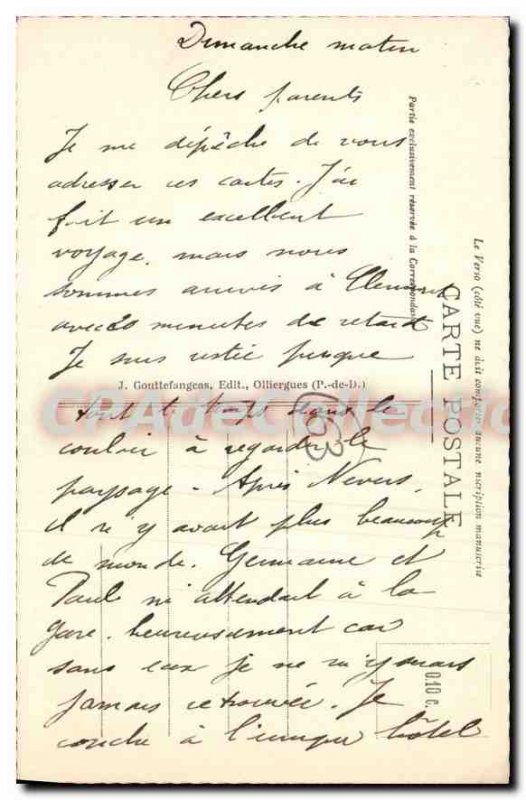 Dimanche matin
Chers parents
Je me dépêche de vous
adresser ces cartes. J'ai
fait un excellent
voyage, mais nous
sommes arrivés à Clermont
avec 20 minutes de retard
Je suis restée presque
tout le temps dans le
couloir à regarder le
paysage - Après Nevers,
il n'y avait plus beaucoup
de monde. Germaine et
Paul m'attendait à la
gare. heureusement car
sans eux je ne m'y serais
jamais retrouvée. Je
couche à l' hôtel
J. Gouttefangeas, Edit., Olliergues (P.-de-D.)
CPADeCollection
Partie exclusivement réservée à la Correspondance
CARTE POSTALE
Le Verso (côté vue) ne doit comporter aucune inscription manuscrite
0.10 c.